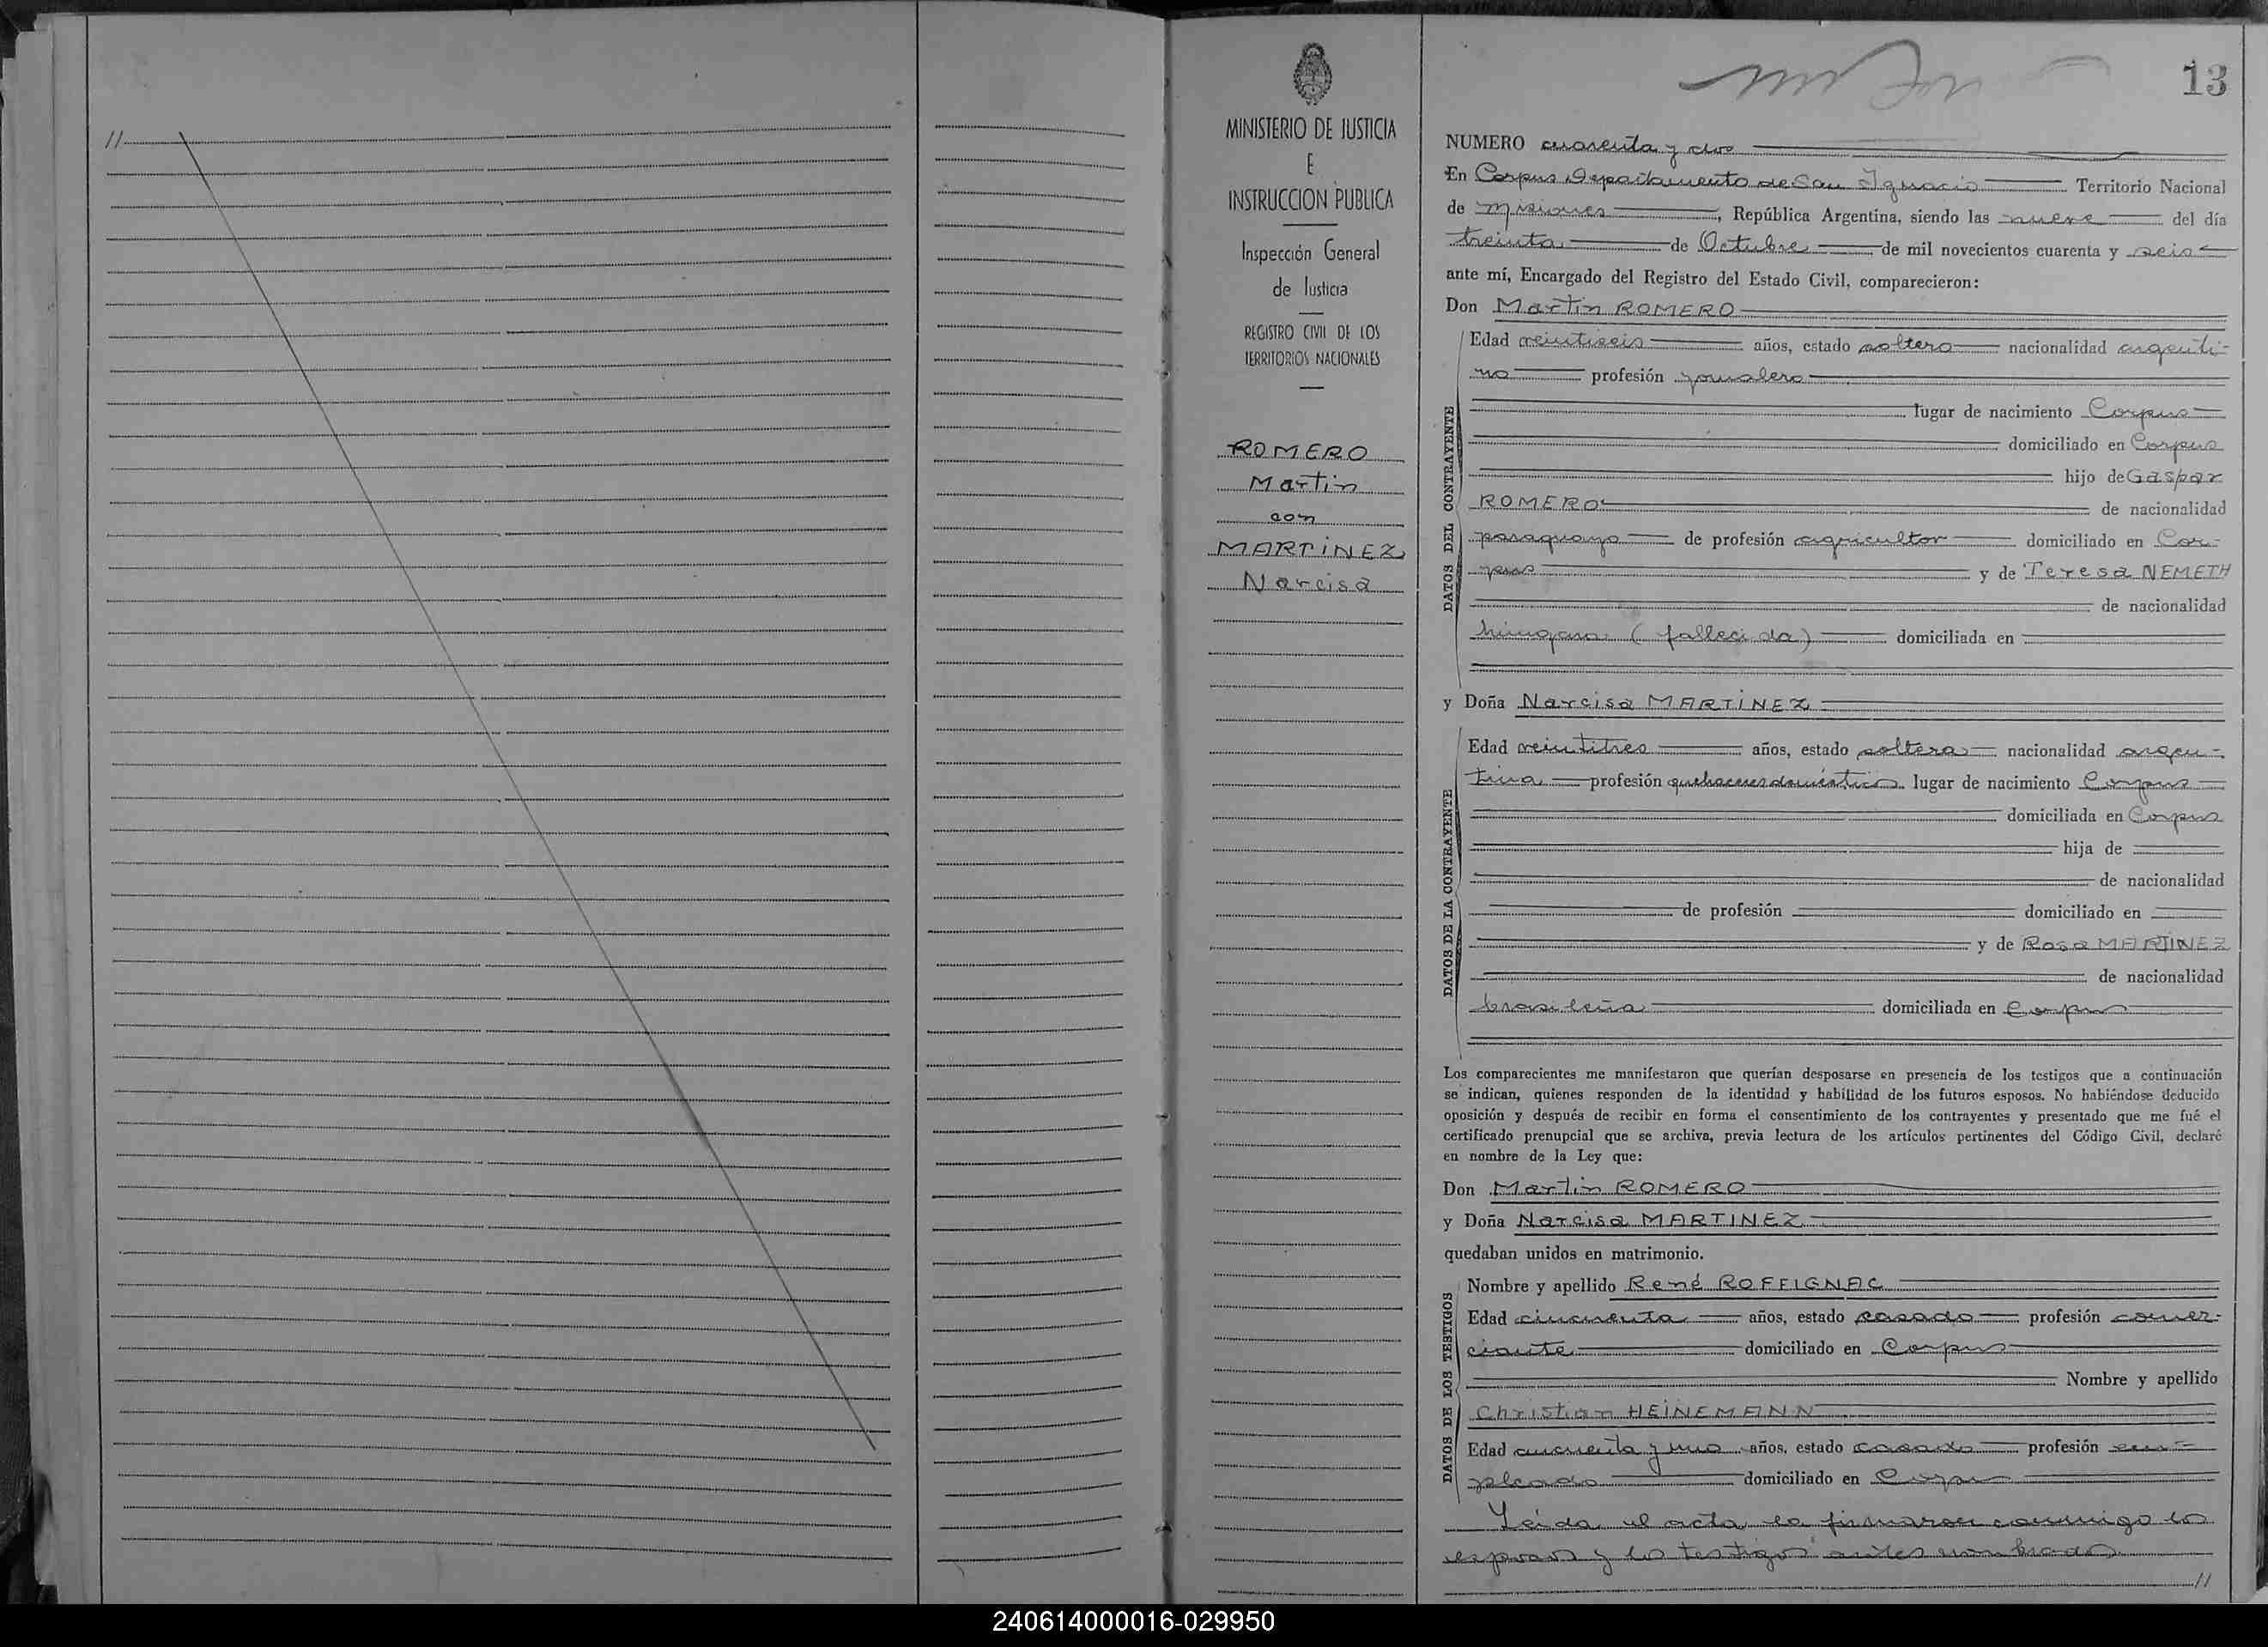 //
MINISTERIO DE JUSTICIA
E
INSTRUCCION PUBLICA
Inspección General
de Justicia
REGISTRO CIVIL DE LOS
TERRITORIOS NACIONALES
ROMERO
Martin
con
MARTINEZ
Narcisa
13
NUMERO cuarenta y dos
En Corpus Departamento de San Ignacio Territorio Nacional
de Misiones, República Argentina, siendo las nueve del día
treinta de Octubre de mil novecientos cuarenta y seis
ante mí, Encargado del Registro del Estado Civil, comparecieron:
Don Martin ROMERO
DATOS DEL CONTRAYENTE
Edad veintiseis años, estado soltero nacionalidad argenti-
no profesión jornalero
lugar de nacimiento Corpus
domiciliado en Corpus
hijo de Gaspar
ROMERO de nacionalidad
paraguayo de profesión agricultor domiciliado en Cor-
pus y de Teresa NEMETH
de nacionalidad
húngara (fallecida) domiciliada en
y Doña Narcisa MARTINEZ
DATOS DE LA CONTRAYENTE
Edad veintitres años, estado soltera nacionalidad argen-
tina profesión quehaceres domésticos lugar de nacimiento Corpus
domiciliada en Corpus
hija de
de nacionalidad
de profesión domiciliado en
y de Rosa MARTINEZ
de nacionalidad
brasileña domiciliada en Corpus
Los comparecientes me manifestaron que querían desposarse en presencia de los testigos que a continuación
se indican, quienes responden de la identidad y habilidad de los futuros esposos. No habiéndose deducido
oposición y después de recibir en forma el consentimiento de los contrayentes y presentado que me fué el
certificado prenupcial que se archiva, previa lectura de los artículos pertinentes del Código Civil, declaré
en nombre de la Ley que:
Don Martin ROMERO
y Doña Narcisa MARTINEZ
quedaban unidos en matrimonio.
DATOS DE LOS TESTIGOS
Nombre y apellido René ROFFIGNAC
Edad cincuenta años, estado casado profesión comer-
ciante domiciliado en Corpus
Nombre y apellido
Christian HEINEMANN
Edad cincuenta y uno años, estado casado profesión em-
pleado domiciliado en Corpus
Leída el acta la firmaron conmigo los
esposos y los testigos antes nombrados
//
240614000016-029950